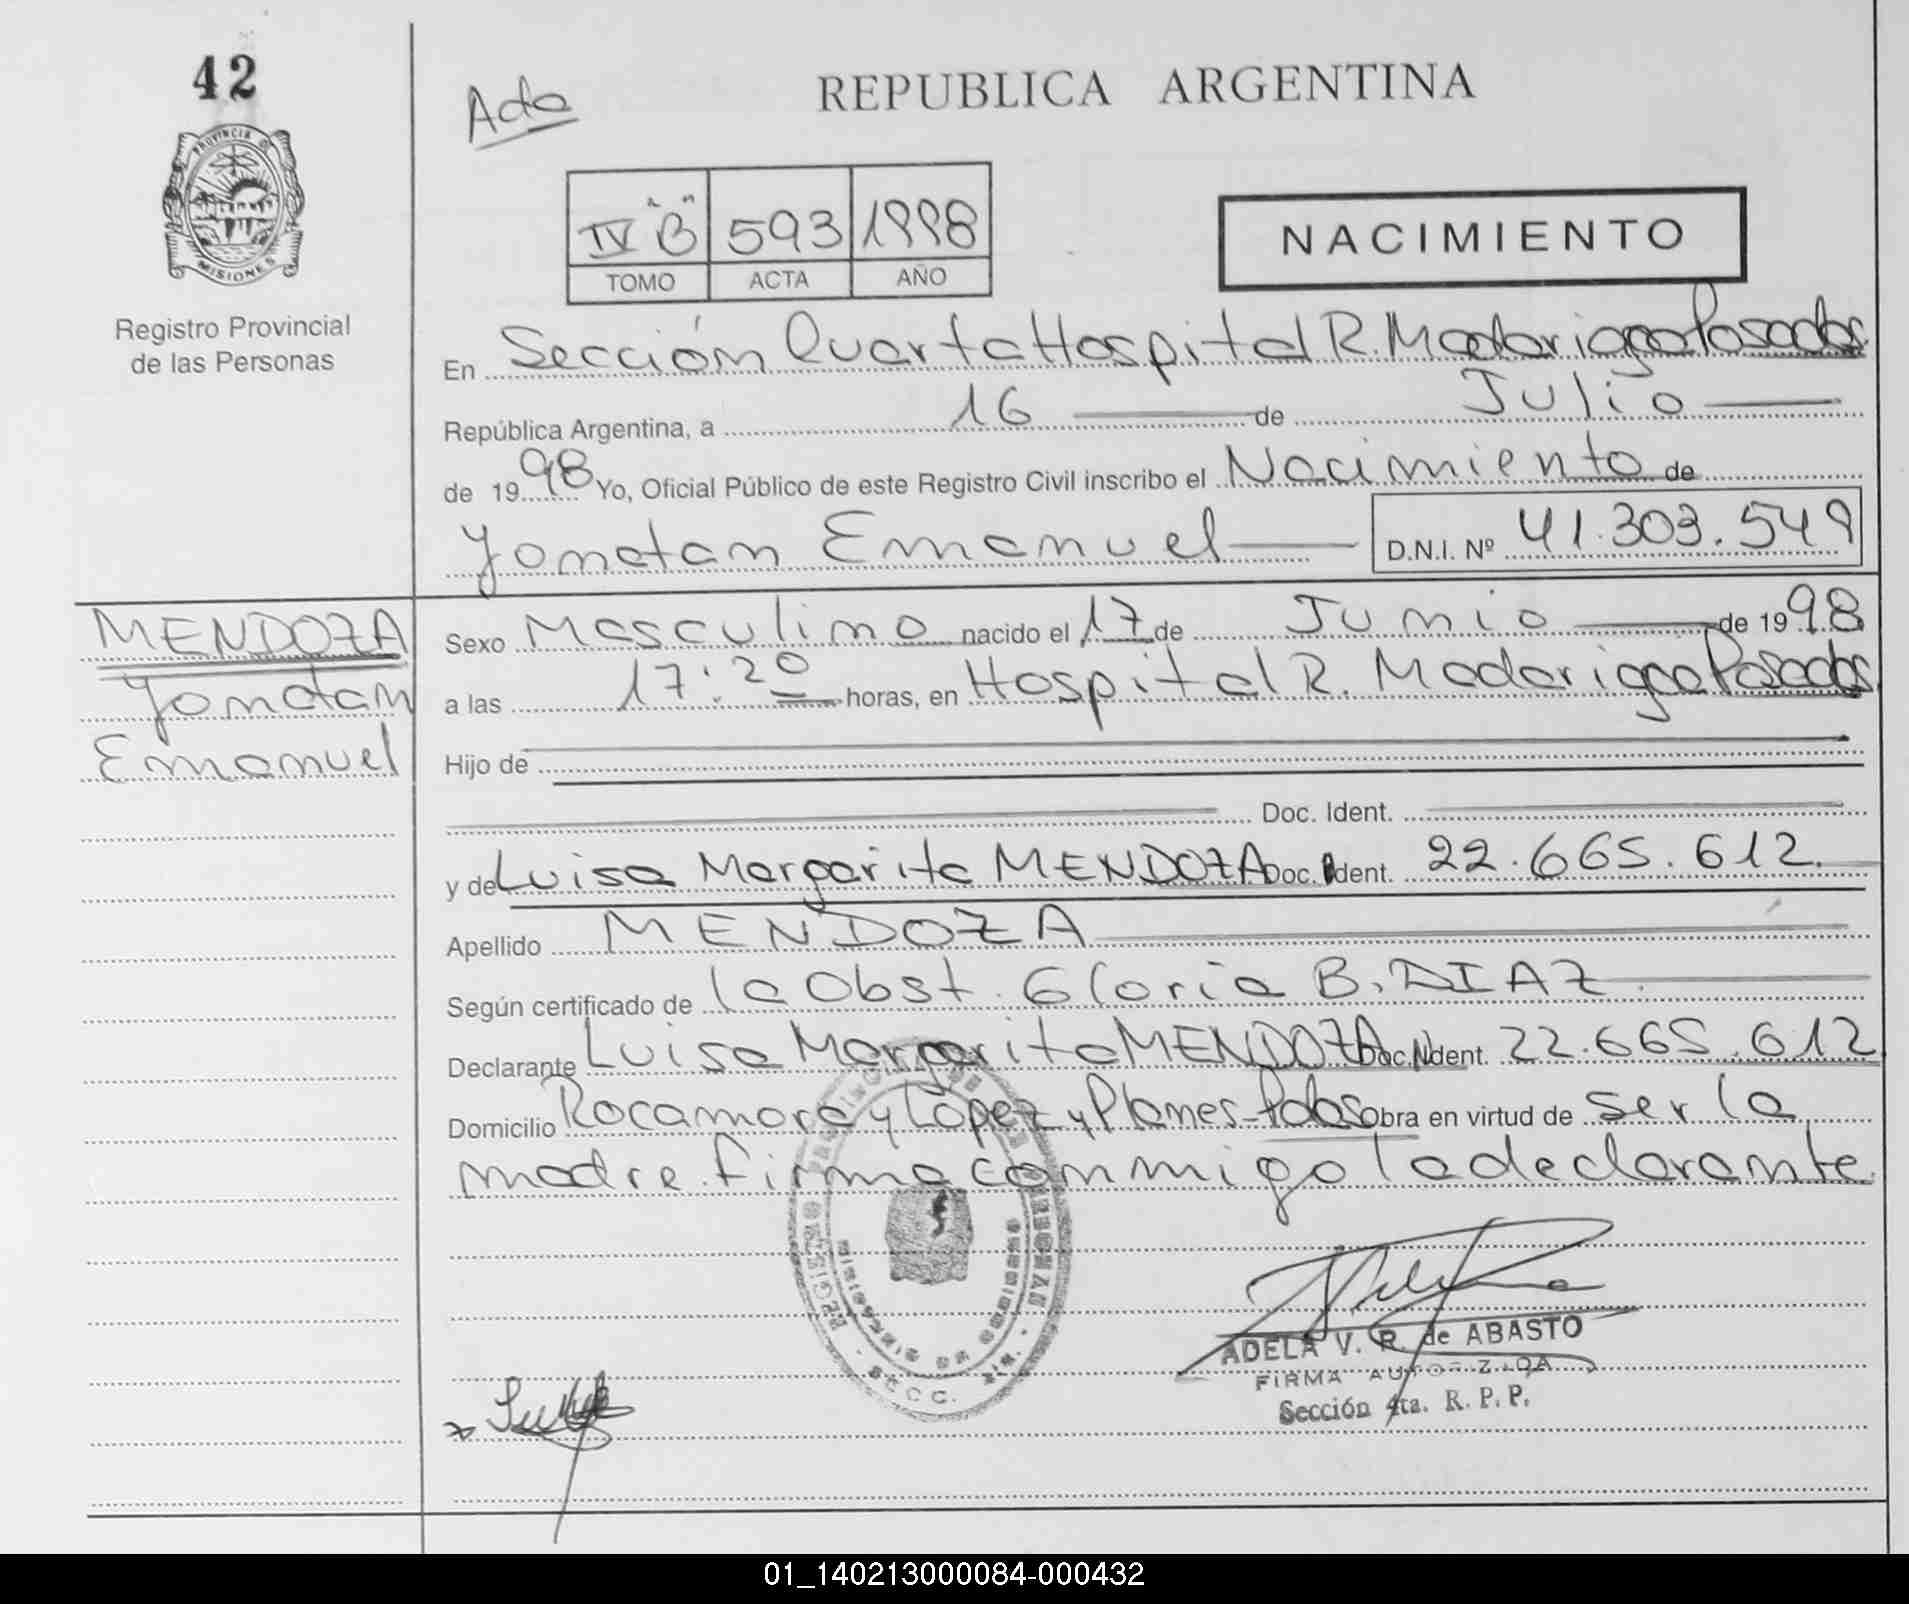 42
Ada
REPUBLICA ARGENTINA
PROVINCIA DE
MISIONES
IV "B" 593 1998
TOMO ACTA AÑO
NACIMIENTO
Registro Provincial
de las Personas
En Sección Cuarta Hospital R. Madariaga Posadas
República Argentina, a 16 de Julio
de 1998 Yo, Oficial Público de este Registro Civil inscribo el Nacimiento de
Yonatan Emanuel D.N.I. Nº 41.303.549
MENDOZA
Yonatan
Emanuel
Sexo Masculino nacido el 17 de Junio de 1998
a las 17:20 horas, en Hospital R. Madariaga Posadas
Hijo de
Doc. Ident.
y de Luisa Margarita MENDOZA Doc. Ident. 22.665.612.
Apellido MENDOZA
Según certificado de la Obst. Gloria B. DIAZ.
Declarante Luisa Margarita MENDOZA Doc. Ident. 22.665.612
Domicilio Rocamora y López y Planes - Pdas Obra en virtud de ser la
madre. firma conmigo la declarante.
ADELA V. R. de ABASTO
FIRMA AUTORIZADA
Sección 4ta. R. P. P.
01_140213000084-000432